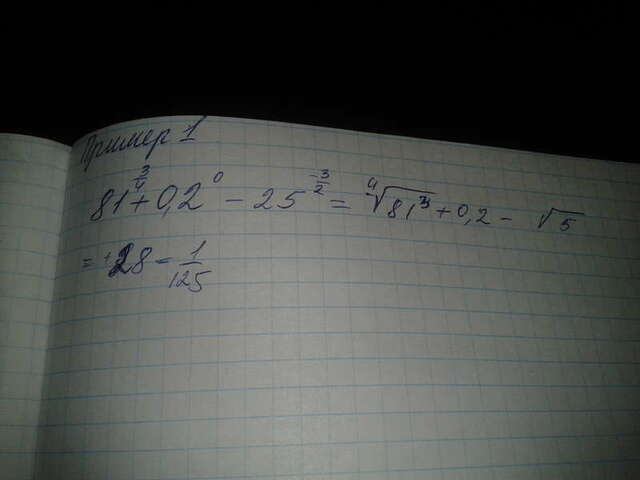 Пример 1
81^{3/4} + 0,2^0 - 25^{-3/2} = \sqrt[4]{81^3} + 0,2 - \sqrt{5}
= 28 - 1/125